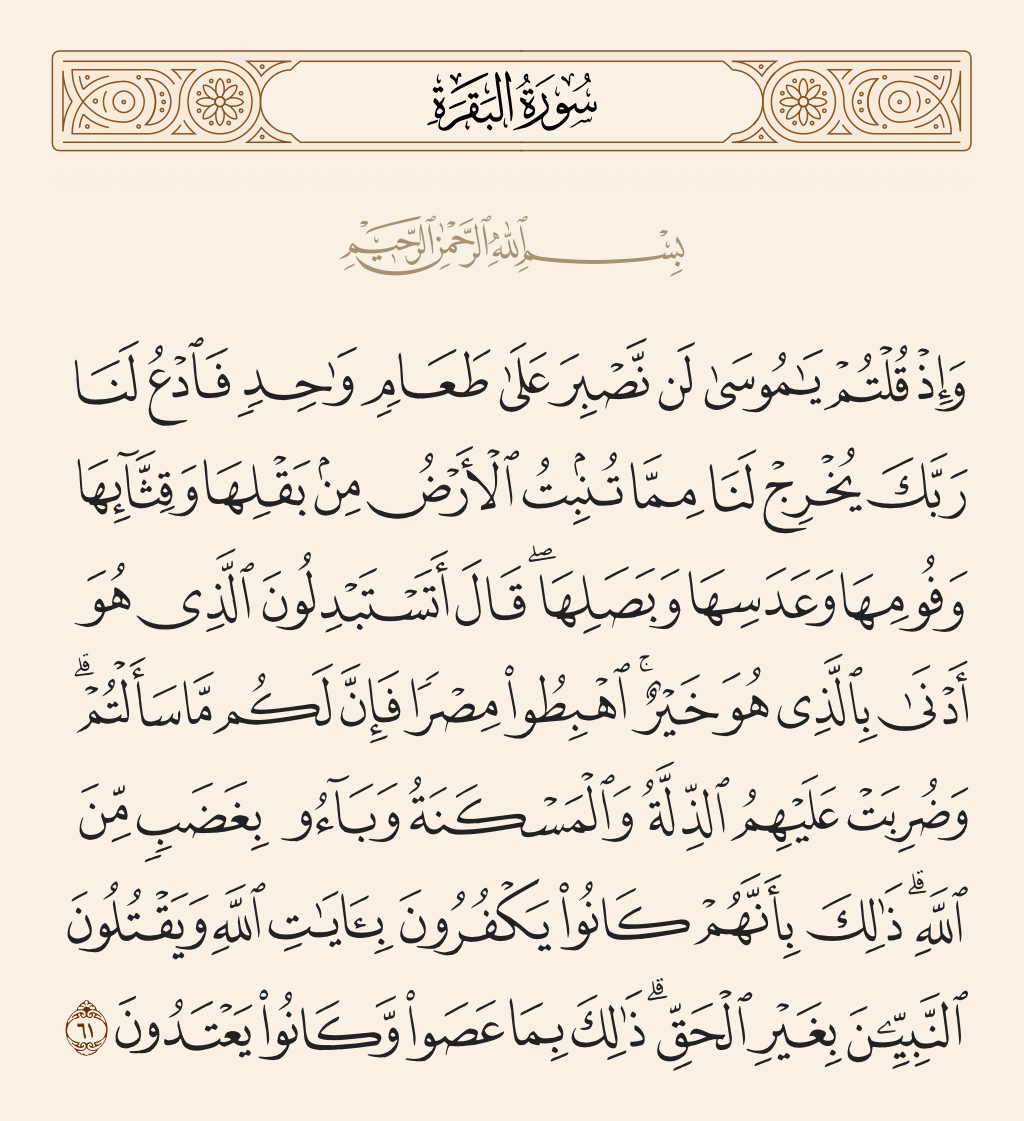 سُورَةُ البَقَرَةِ
بِسْمِ ٱللَّهِ ٱلرَّحْمَٰنِ ٱلرَّحِيمِ
وَإِذْ قُلْتُمْ يَٰمُوسَىٰ لَن نَّصْبِرَ عَلَىٰ طَعَامٍ وَٰحِدٍ فَٱدْعُ لَنَا
رَبَّكَ يُخْرِجْ لَنَا مِمَّا تُنۢبِتُ ٱلْأَرْضُ مِنۢ بَقْلِهَا وَقِثَّآئِهَا
وَفُومِهَا وَعَدَسِهَا وَبَصَلِهَا ۖ قَالَ أَتَسْتَبْدِلُونَ ٱلَّذِى هُوَ
أَدْنَىٰ بِٱلَّذِى هُوَ خَيْرٌ ۚ ٱهْبِطُوا۟ مِصْرًا فَإِنَّ لَكُم مَّا سَأَلْتُمْ ۗ
وَضُرِبَتْ عَلَيْهِمُ ٱلذِّلَّةُ وَٱلْمَسْكَنَةُ وَبَآءُو بِغَضَبٍ مِّنَ
ٱللَّهِ ۗ ذَٰلِكَ بِأَنَّهُمْ كَانُوا۟ يَكْفُرُونَ بِـَٔايَٰتِ ٱللَّهِ وَيَقْتُلُونَ
ٱلنَّبِيِّـۧنَ بِغَيْرِ ٱلْحَقِّ ۗ ذَٰلِكَ بِمَا عَصَوا۟ وَّكَانُوا۟ يَعْتَدُونَ ٦١